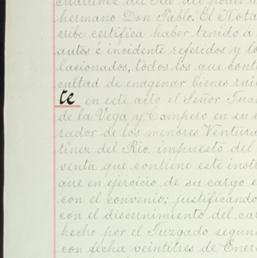 hermano Don Pablo. El Nota
cribe certifica haber tenido á
autos é incidente referidos y lo
lacionados, todos los que cont
cultad de enagenar bienes raí
te en este acto el Señor Jua
de la Vega y Campero en su c
rador de los menores Ventura
tinez del Rio, impuesto del
venta que contiene este inst
que en ejercicio de su cargo e
con el convenio; justificando
con el discernimiento del car
hecho por el Juzgado segun
con fecha veintitres de Ener